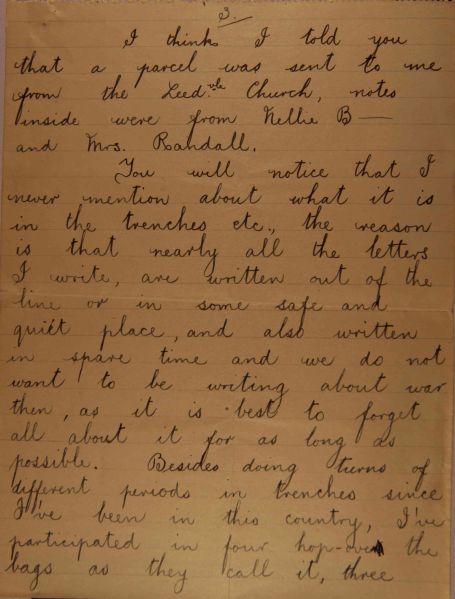 3.
I think I told you
that a parcel was sent to me
from the Leed.vle Church, notes
inside were from Nellie B—
and Mrs. Randall.
You will notice that I
never mention about what it is
in the trenches etc., the reason
is that nearly all the letters
I write, are written out of the
line or in some safe and
quiet place, and also written
in spare time and we do not
want to be writing about war
then, as it is best to forget
all about it for as long as
possible. Besides doing turns of
different periods in trenches since
I've been in this country, I've
participated in four hop-over the
bags as they call it, three